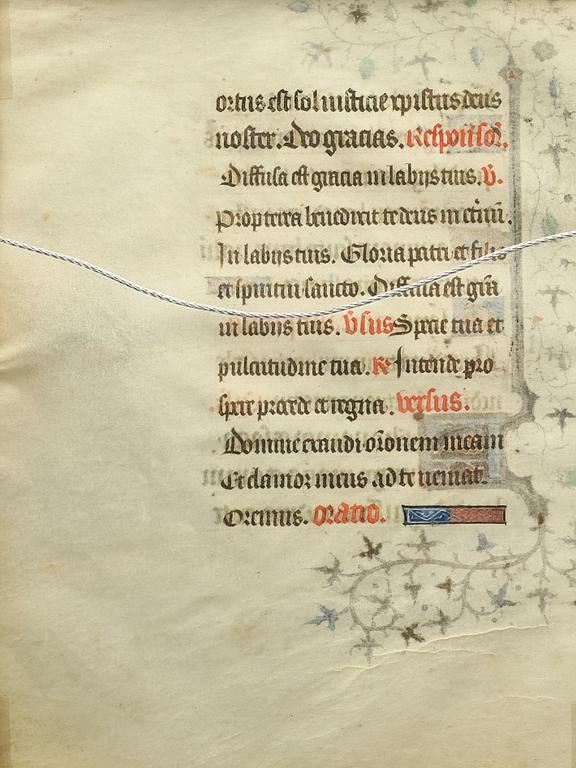 ortus est sol iusticie xpistus deus
noster. Deo gracias. Responsor̄.
Diffusa est gracia in labijs tuis. v̄.
Propterea benedixit te deus in et̄nū.
In labijs tuis. Gloria patri et filio
et spiritui sancto. Diffusa est gr̄a
in labijs tuis. v̄sus Specie tua et
pulcritudine tua. R̄ Intende pro
spere procede et regna. versus.
Domine exaudi or̄onem meam
Et clamor meus ad te ueniat.
Oremus. oratio.